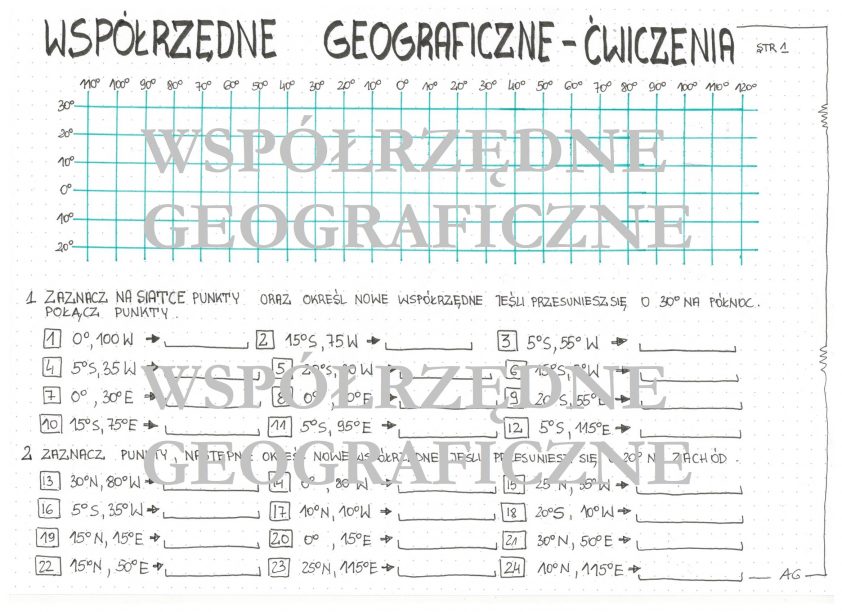 WSPÓŁRZĘDNE GEOGRAFICZNE - ĆWICZENIA STR 1
110° 100° 90° 80° 70° 60° 50° 40° 30° 20° 10° 0° 10° 20° 30° 40° 50° 60° 70° 80° 90° 100° 110° 120°
30°
20°
10°
0°
10°
20°
WSPÓŁRZĘDNE
GEOGRAFICZNE
1 ZAZNACZ NA SIATCE PUNKTY ORAZ OKREŚL NOWE WSPÓŁRZĘDNE JEŚLI PRZESUNIESZ SIĘ O 30° NA PÓŁNOC.
POŁĄCZ PUNKTY.
1 0°, 100 W → 2 15°S, 75 W → 3 5°S, 55° W →
4 5°S, 35 W → 5 6
7 0°, 30°E → 8 0°, 9 20°S, 55°E
10 15°S, 75°E → 11 5°S, 95°E → 12 5°S, 115°E →
WSPÓŁRZĘDNE
GEOGRAFICZNE
2 ZAZNACZ PUNKTY, NASTĘPNIE OKREŚL NOWE WSPÓŁRZĘDNE JEŚLI PRZESUNIESZ SIĘ O 20° NA ZACHÓD.
13 30°N, 80°W → 14 0°, 80 W → 15 25°N, 55°W →
16 5°S, 35°W → 17 10°N, 10°W → 18 20°S, 10°W →
19 15°N, 15°E → 20 0°, 15°E → 21 30°N, 50°E →
22 15°N, 50°E → 23 25°N, 115°E → 24 10°N, 115°E →
AG